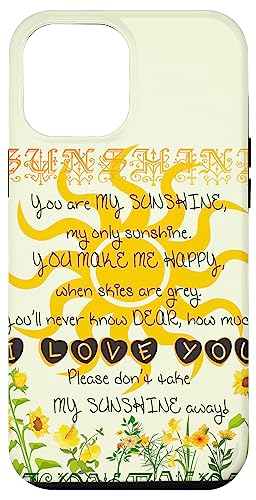 SUNSHINE
You are MY SUNSHINE,
my only sunshine.
YOU MAKE ME HAPPY,
when skies are grey.
you'll never know DEAR, how much
I LOVE YOU
Please don't take
MY SUNSHINE away!